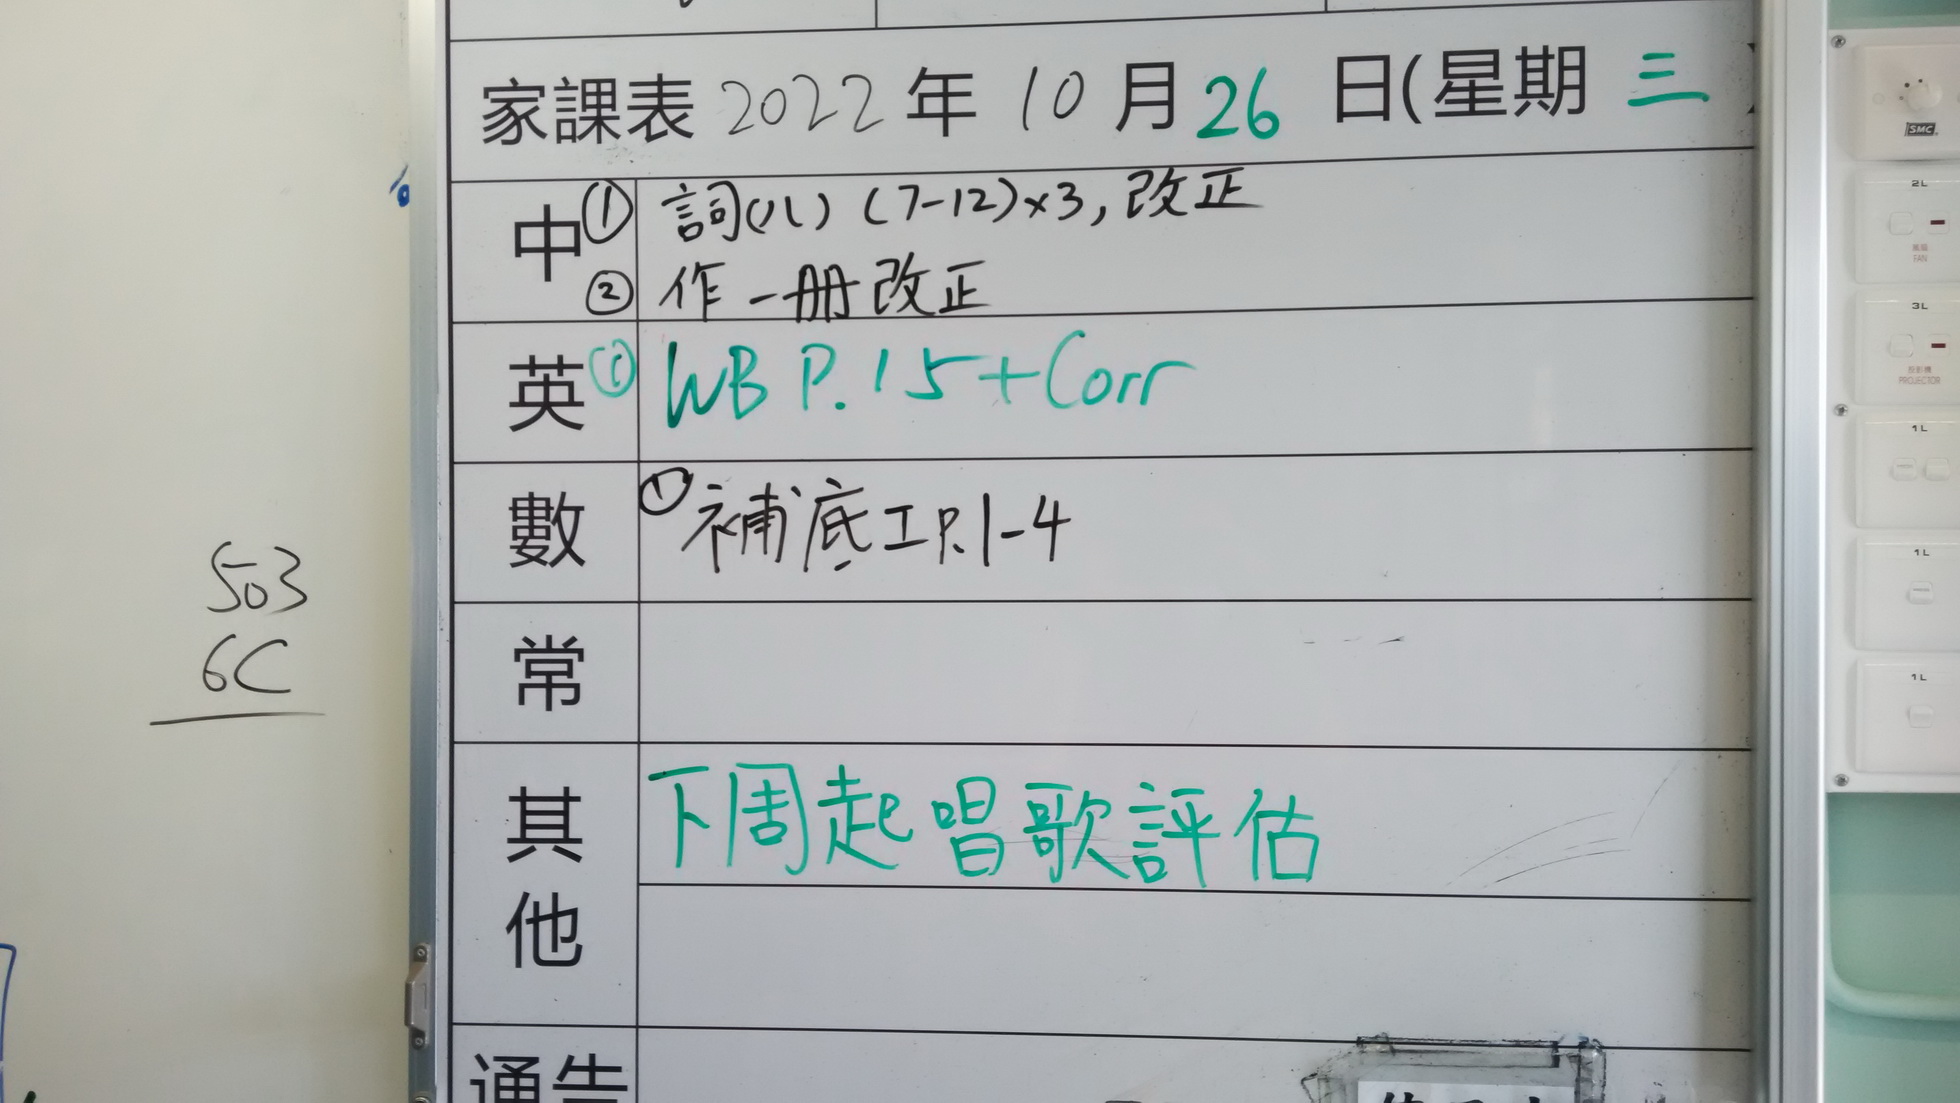 家課表 2022 年 10 月 26 日(星期 三 )
中 ① 詞(八) (7-12)×3, 改正
② 作一册改正
英 ① WB P.15+Corr
數 ① 補底工P.1-4
常
其他 下周起唱歌評估
通告
503
6C
SMC
2L
風扇
FAN
3L
投影機
PROJECTOR
1L
1L
1L